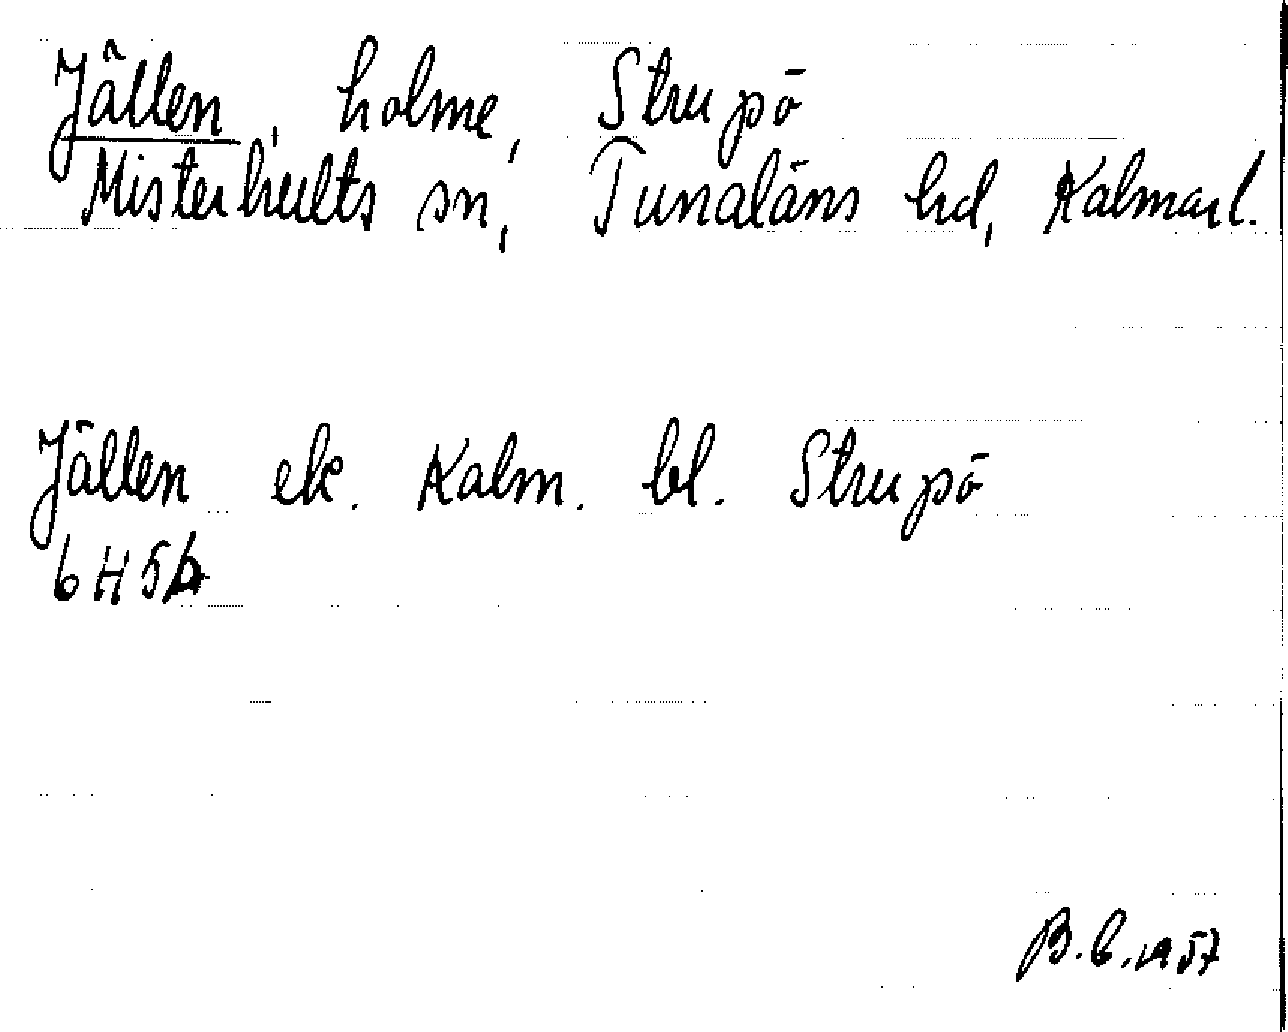 Jällen, holme, Strupö
Misterhults sn, Tunaläns hd, Kalmar l.
Jällen ek. Kalm. bl. Strupö
6H5b
B.C. 1957